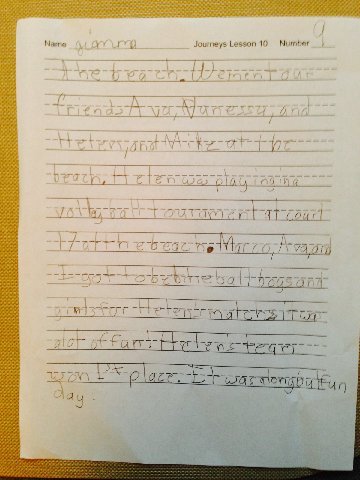 Name gianna Journeys Lesson 10 Number 9
The beach. We ment our
friends Ava, Vanessa, and
Helen, and Mike at the
beach. Helen was playing in a
volleyball tournament at court
17 at the beach. Marco, Ava, and
I got to be the ball boys and
girls for Helen's match. It was
alot of fun! Helen's team
won 1st place. It was a long but fun
day.